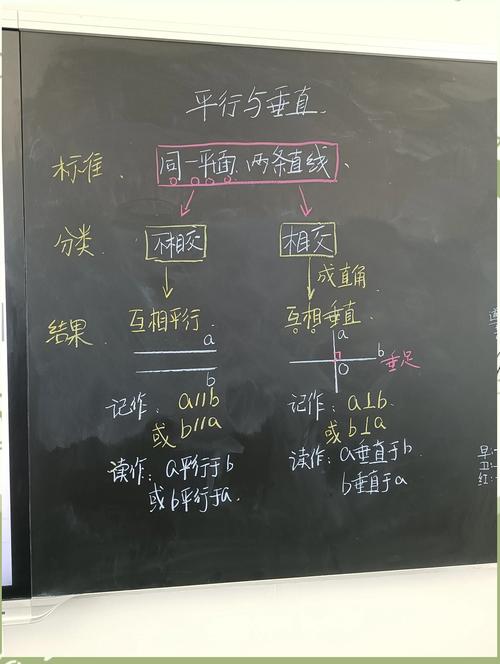 平行与垂直
标准. 同一平面 两条直线.
分类. 不相交 相交
成直角
结果. 互相平行. 互相垂直
a a
b 垂足
O
b
记作: a∥b 记作: a⊥b
或 b∥a 或 b⊥a
读作: a平行于b 读作: a垂直于b.
或b平行于a. b垂直于a
早
卫
红